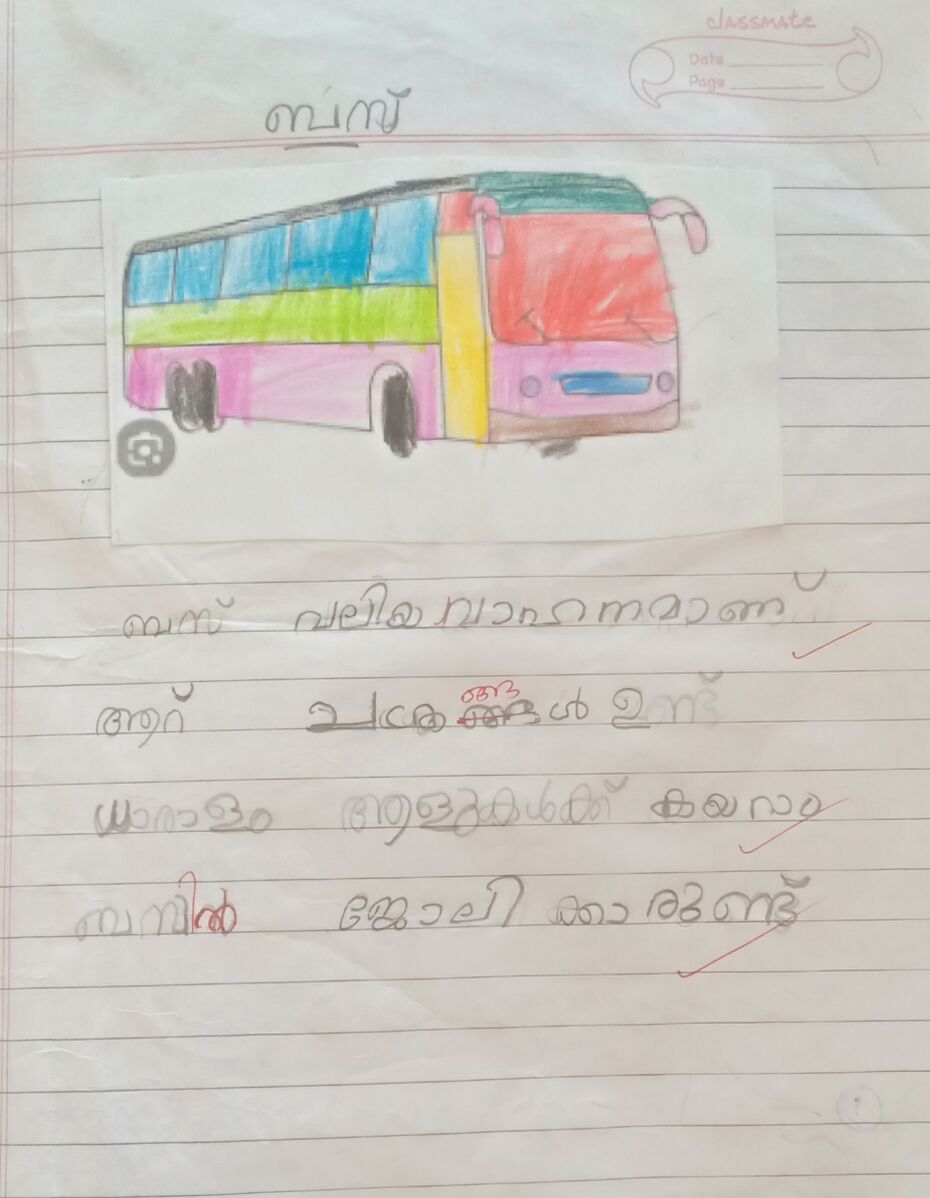 classmate
Date
Page
ബസ്
ബസ് വലിയ വാഹനമാണ്
ആറ് ചക്രങ്ങൾ ഉണ്ട്
ങ്ങ
ധാരാളം ആളുകൾക്ക് കയറാം
ബസിൽ ജോലിക്കാരുണ്ട്
1